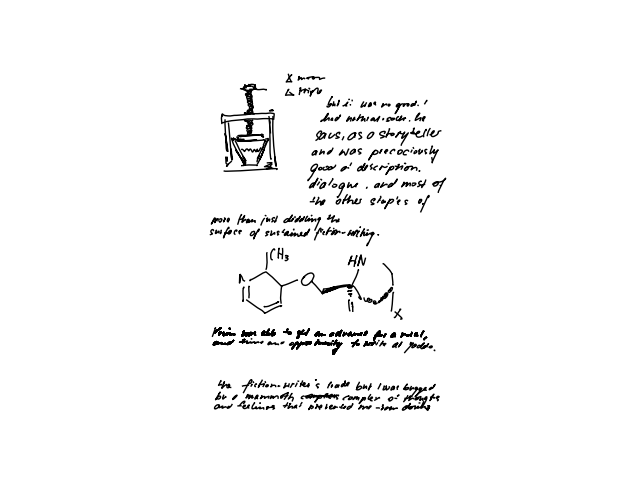 X moon
△ triple
but it was no good. I
had natural 
says, as a storyteller
and was precociously
good at description,
dialogue, and most of
the other staples of
more than just diddling the
surface of sustained fiction-writing.
CH3
N
O
HN
X
was able to get an advance for a novel,
and time and opportunity to write at
the fiction-writer's trade but I was bugged
by a mammoth complex of thoughts
and feelings that prevented me from doing